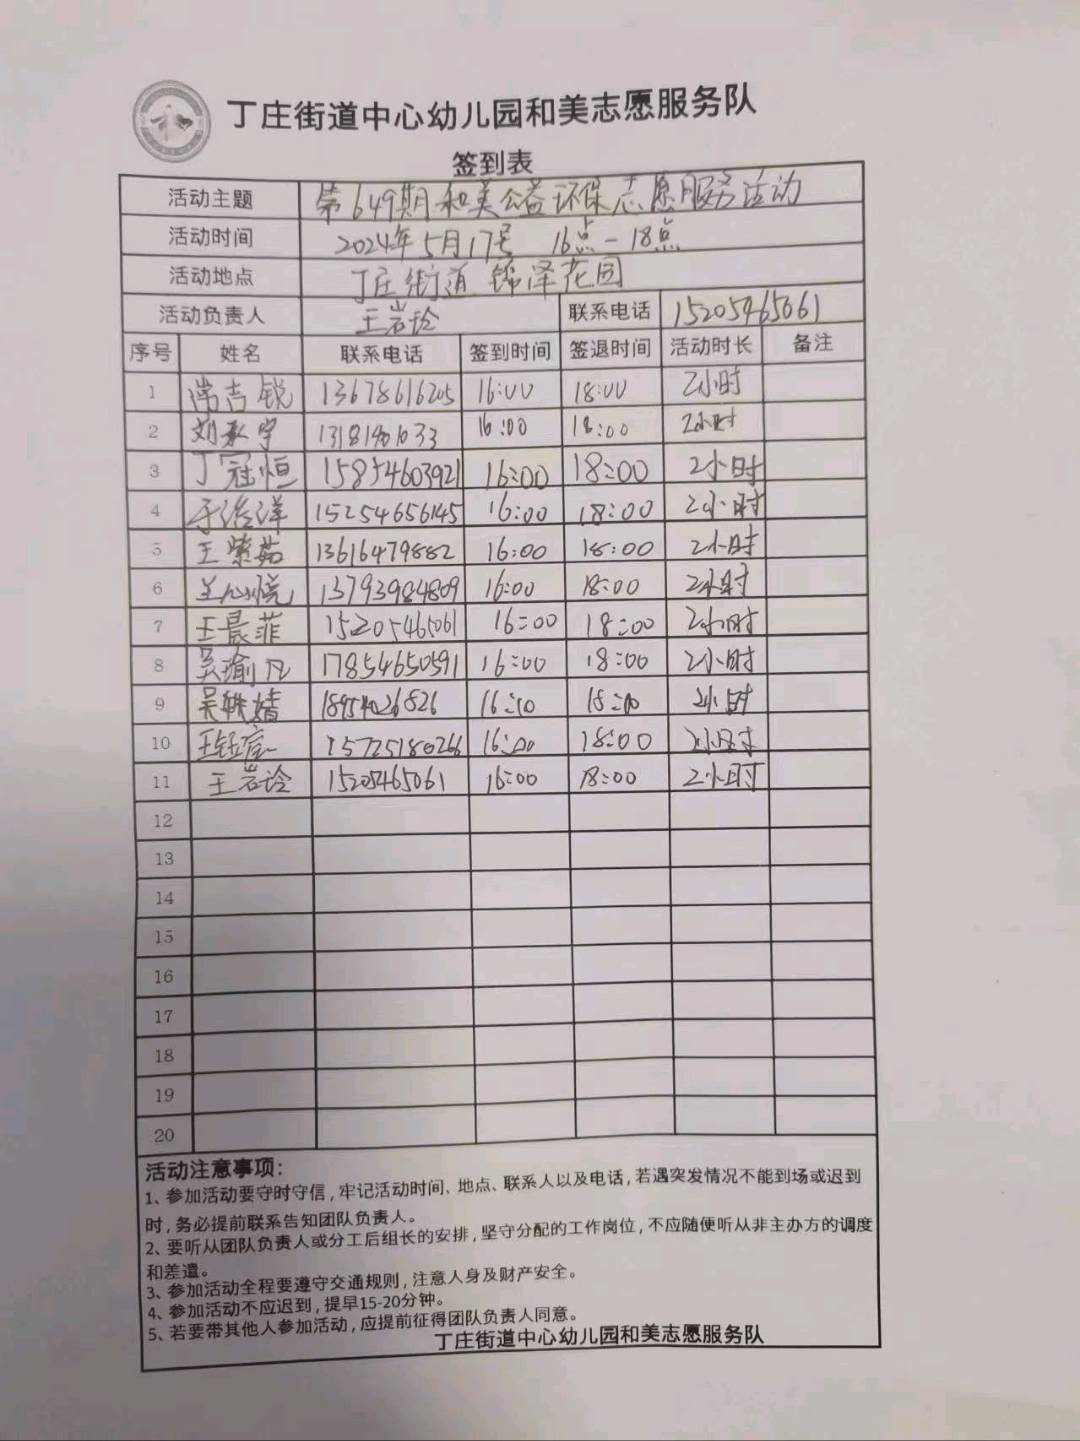 丁庄街道中心幼儿园和美志愿服务队
签到表
活动主题 第649期和美公益环保志愿服务活动
活动时间 2024年5月17号 16点-18点
活动地点 丁庄街道锦泽花园
活动负责人 王岩玲 联系电话 15205465061
序号 姓名 联系电话 签到时间 签退时间 活动时长 备注
1 常吉锐 13678616205 16:00 18:00 2小时
2 刘承宇 16:00 18:00 2小时
3 丁冠恒 15854603921 16:00 18:00 2小时
4 于浩洋 15254656145 16:00 18:00 2小时
5 王紫茹 13616479882 16:00 18:00 2小时
6 13793984809 16:00 18:00 2小时
7 王晨菲 15205465061 16:00 18:00 2小时
8 吴瑜凡 17854650591 16:00 18:00 2小时
9 吴轶婧 18954026826 2小时
10 15725180266 16:00 18:00 2小时
11 王岩玲 15205465061 16:00 18:00 2小时
12
13
14
15
16
17
18
19
20
活动注意事项:
1、参加活动要守时守信,牢记活动时间、地点、联系人以及电话,若遇突发情况不能到场或迟到
时,务必提前联系告知团队负责人。
2、要听从团队负责人或分工后组长的安排,坚守分配的工作岗位,不应随便听从非主办方的调度
和差遣。
3、参加活动全程要遵守交通规则,注意人身及财产安全。
4、参加活动不应迟到,提早15-20分钟。
5、若要带其他人参加活动,应提前征得团队负责人同意。
丁庄街道中心幼儿园和美志愿服务队